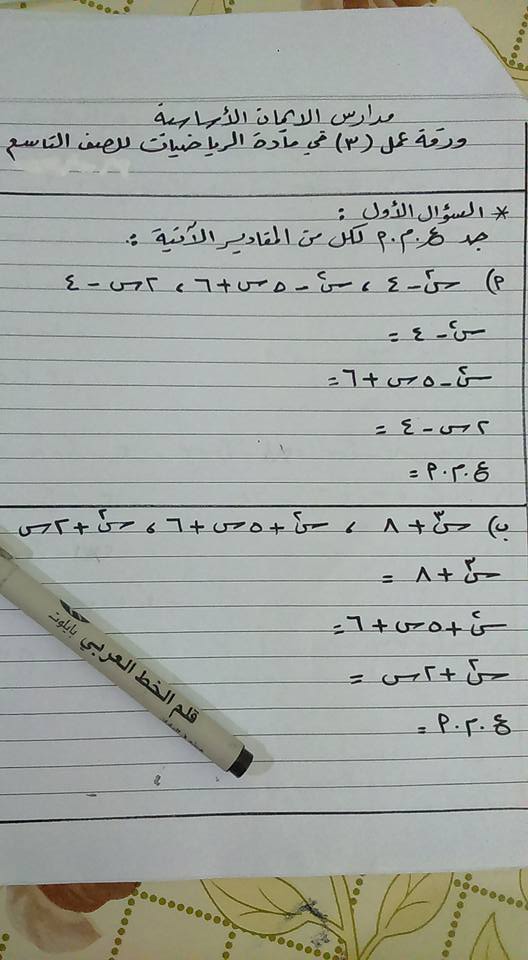 مدارس الايمان الأساسية
ورقة عمل (٣) في مادة الرياضيات للصف التاسع
* السؤال الأول :
جد ع.م.م لكل من المقادير الآتية :
أ) س² - ٤ ، س² - ٥س + ٦ ، ٢س - ٤
س² - ٤ =
س² - ٥س + ٦ =
٢س - ٤ =
ع.م.م =
ب) س³ + ٨ ، س² + ٥س + ٦ ، س² + ٢س
س³ + ٨ =
س² + ٥س + ٦ =
س² + ٢س =
ع.م.م =
قلم الخط العربي
بايلوت